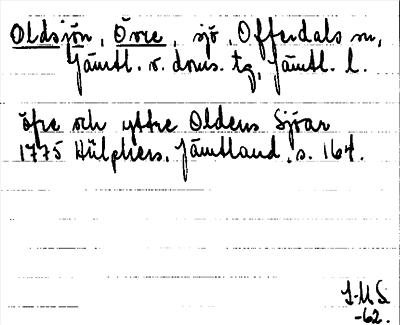 Oldsjön, Övre, sjö, Offerdals sn,
Jämtl. v. doms. tg, Jämtl. l.
öfre och yttre Oldens Sjöar
1775 Hülphers, Jämtland, s. 164.
I-M S
-62.